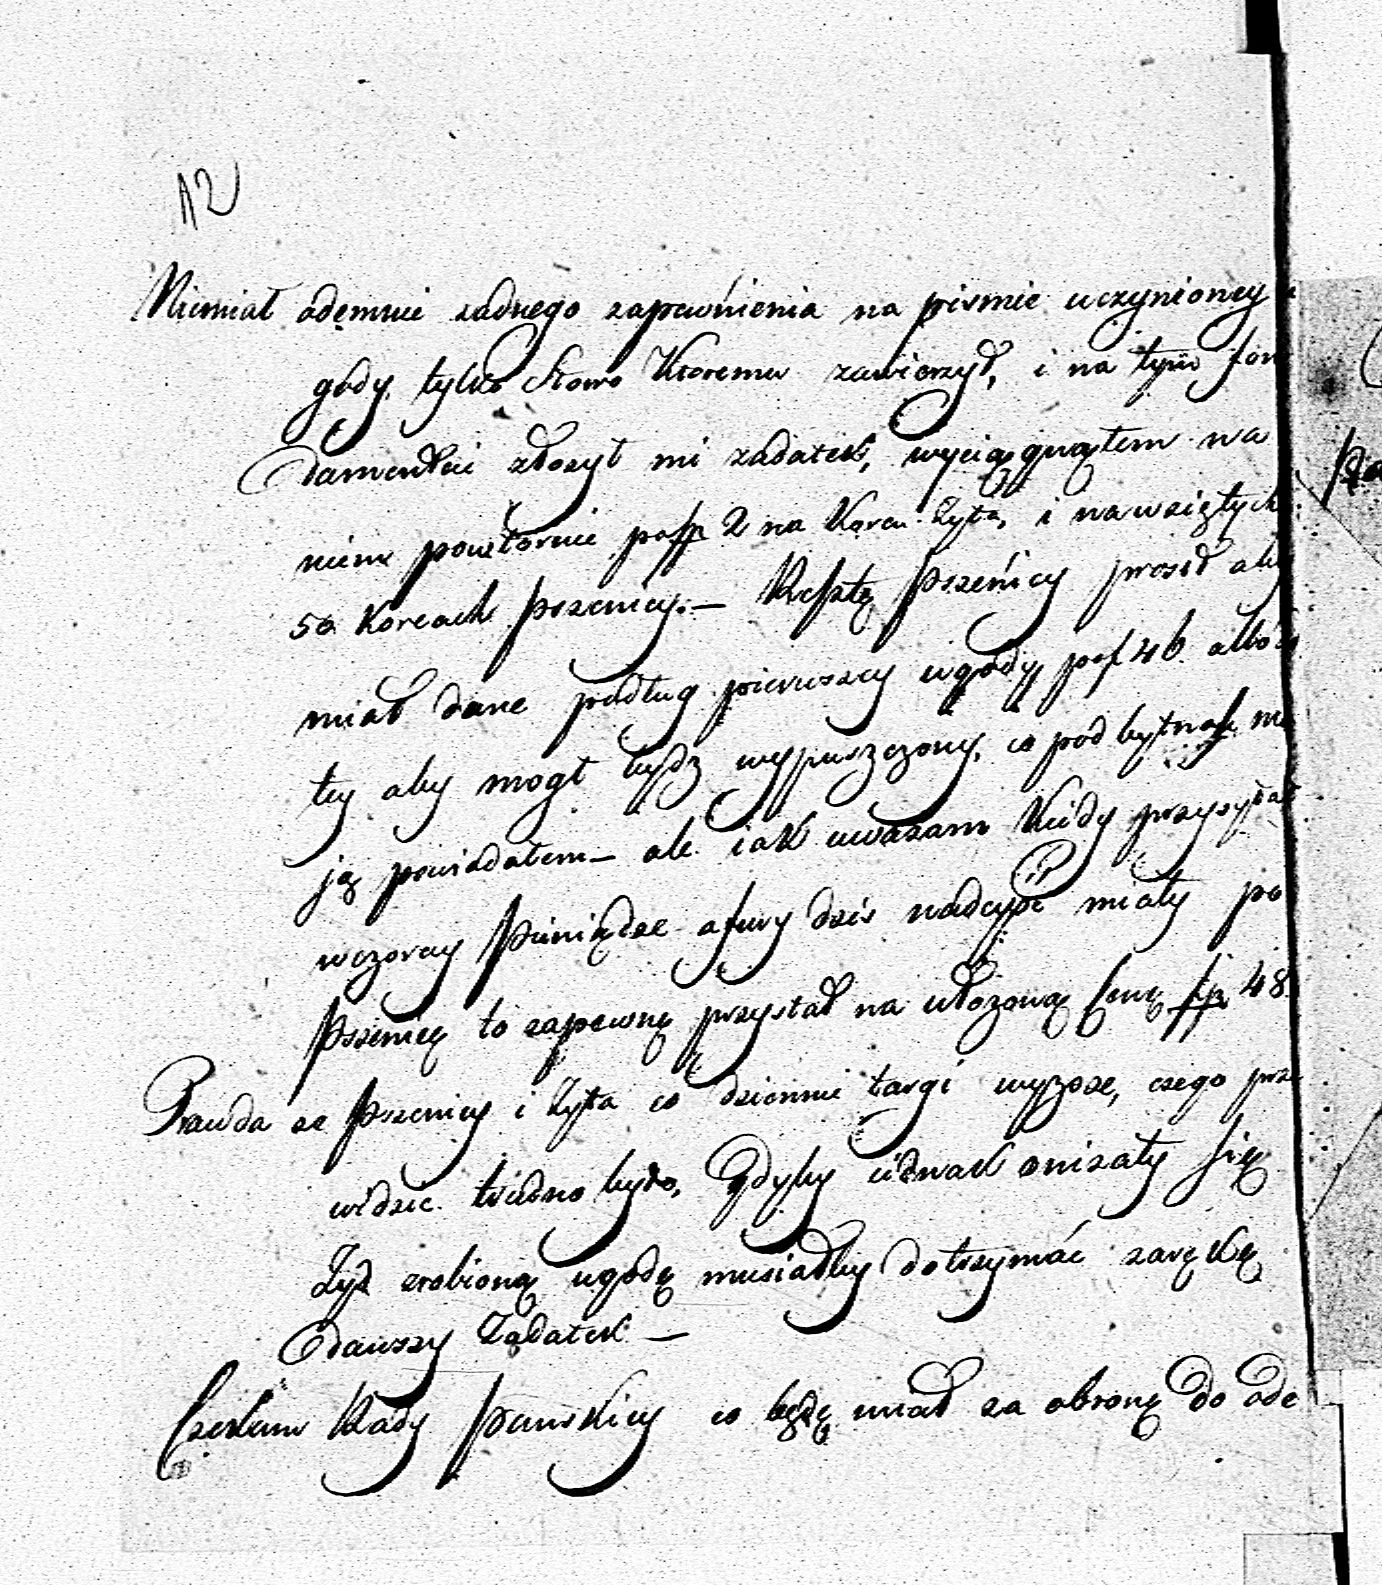 12
Niemiał odemnie zadnego zapewnienia na pismie uczynioney
gody, tylko Słowo Ktoremu zawierzył, i na tym fon
damencie złozył mi zadatek, wyciągnąłem na
nim powtornie po 2 na Korcu Zyta, i na wziętych
50 Korcach pszenicy. — Resztę Pszenicy prosił aby
miał dane podług pierwszey ugody po 46. albo
tey aby mogł bydz wypuszczony, co pod bytność mo
ją powiadałem — ale iak uwazam Kiedy przysyłał
wczoray Pieniądze a fury dzis nadeyść miały po
Pszenicę to zapewnę przystał na ułozoną Cenę 48
Prawda ze Pszenicy i Zyta co dziennie targi wyzsze, czego prze
widzic trudno było, Gdyby iednak znizały się
Zyd zrobioną ugodę musiałby dotrzymać zarękę
dawszy Zadatek —
Czekam Rady Pańskiey co będę miał za obronę do ode